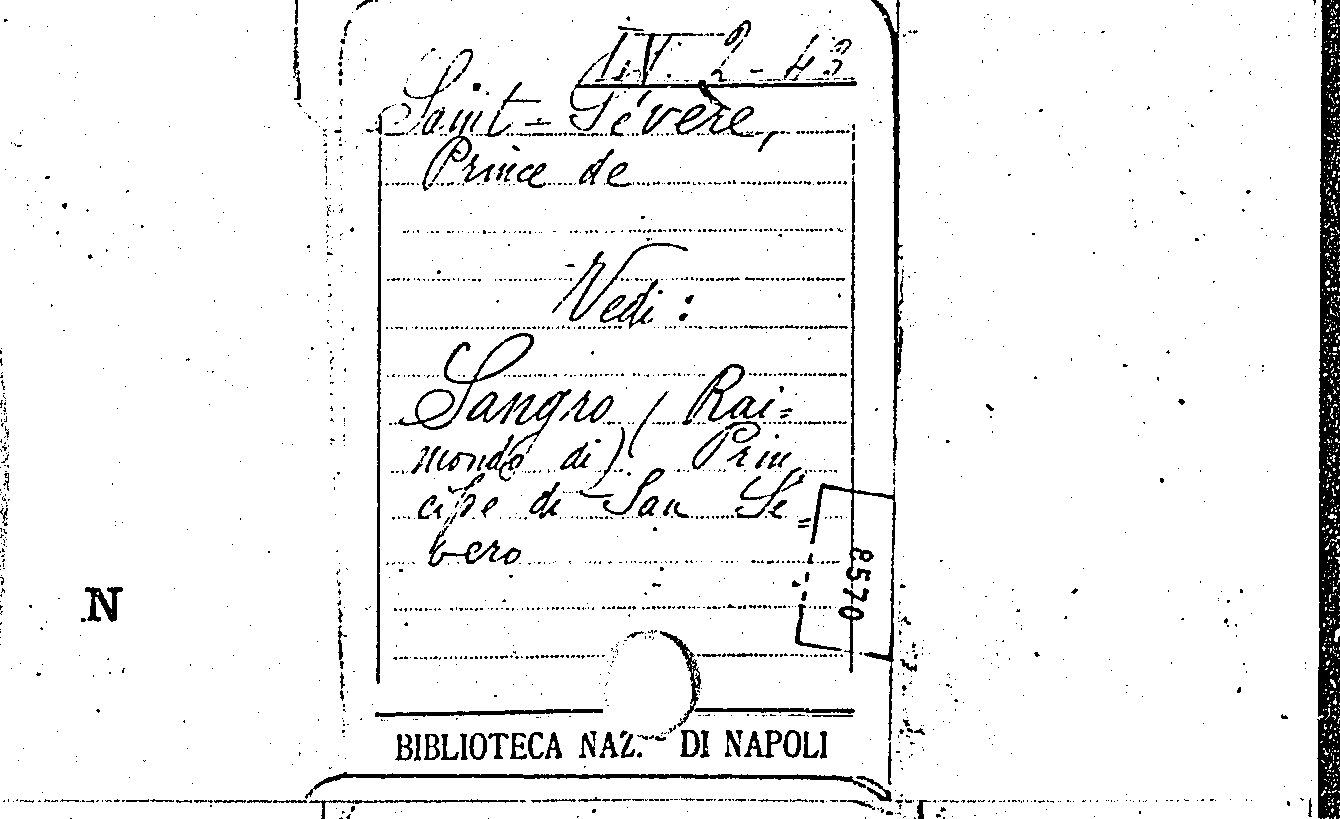 LIV. 2-43
Saint-Sévère,
Prince de
Vedi:
Sangro (Rai=
mondo di) Prin
cipe di San Se=
vero
8570
N
BIBLIOTECA NAZ. DI NAPOLI